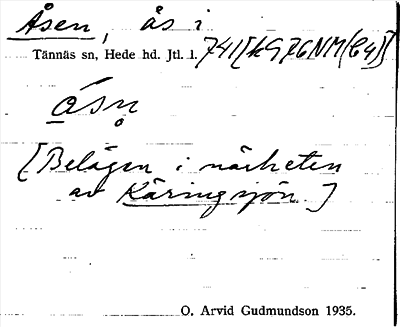 Åsen, ås i
Tännäs sn, Hede hd. Jtl. l.
ásn̥
[Belägen i närheten
av Käringsjön.]
O. Arvid Gudmundson 1935.